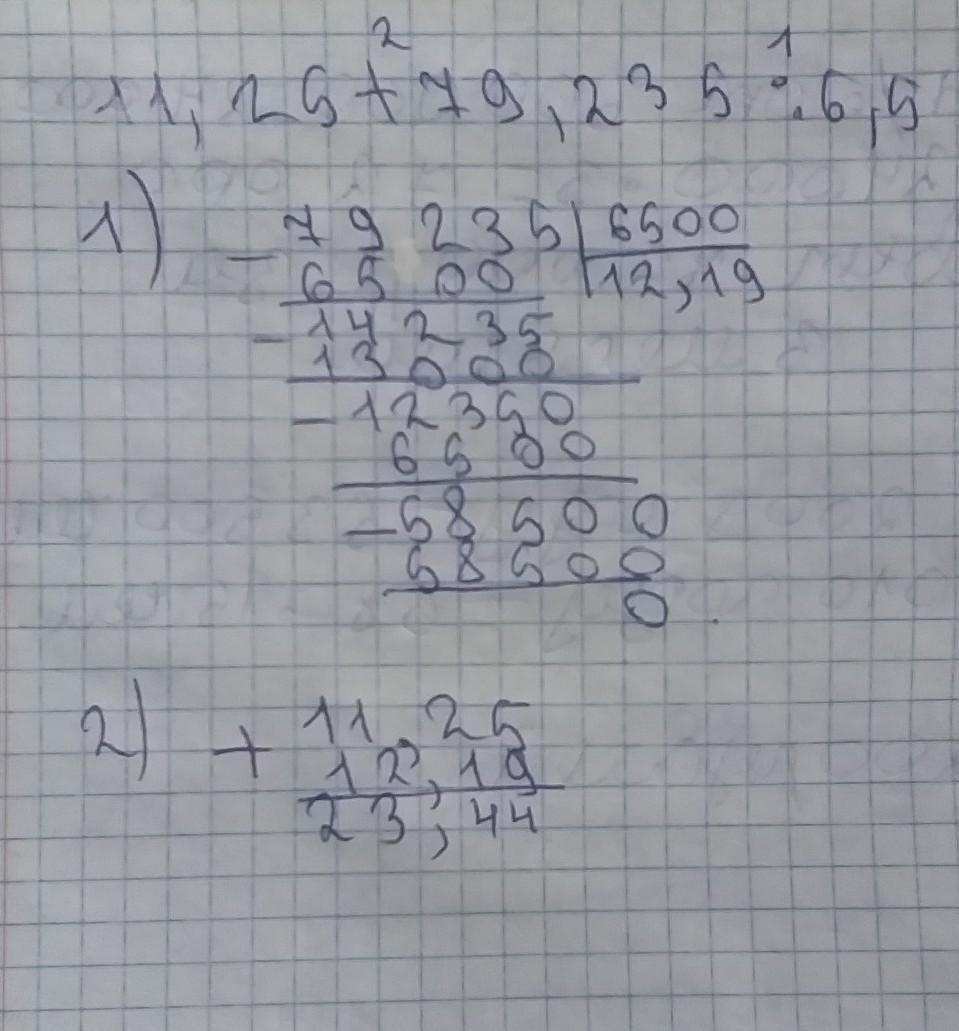 2 1
11,25+79,235:6,5
1) - 79235 | 6500
6500 | 12,19
- 14235
13000
- 12350
6500
- 58500
58500
0
2) + 11,25
12,19
23,44